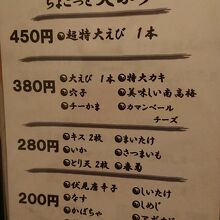 ちょこっと
450円 ●超特大えび 1本
380円 ●大えび 1本 ●特大カキ
●穴子 ●美味しい南高梅
●チーかま ●カマンベール
チーズ
280円 ●キス2枚 ●まいたけ
●いか ●さつまいも
●とり天2枚 ●春菊
200円 ●伏見唐辛子 ●しいたけ
●なす ●しめじ
●かぼちゃ